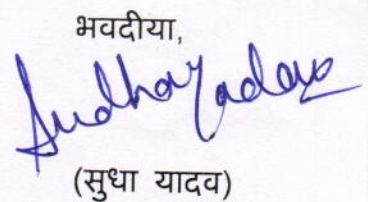 भवदीया,
Sudha Yadav
(सुधा यादव)